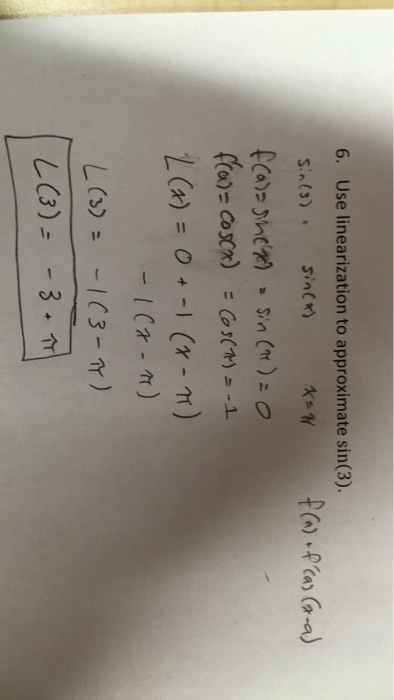 6. Use linearization to approximate sin(3).
sin(3). sin(x) x=π f(a)+f'(a)(x-a)
f(a)= sin(x) = sin(π)=0
f'(a)= cos(x) = cos(π)=-1
L(x) = 0 + -1 (x-π)
-1(x-π)
L(3) = -1(3-π)
L(3) = -3+π